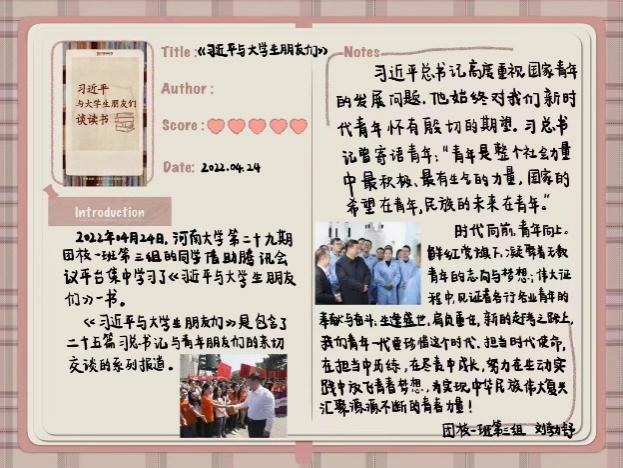 Title:《习近平与大学生朋友们》
习近平
与大学生朋友们
谈读书
Author:
Score:
Date: 2022.04.24
Introduction
2022年04月24日,河南大学第二十九期
团校一班第三组的同学借助腾讯会
议平台集中学习了《习近平与大学生朋友
们》一书。
《习近平与大学生朋友们》是包含了
二十五篇习总书记与青年朋友们的亲切
交谈的系列报道。
Notes
习近平总书记高度重视国家青年
的发展问题,他始终对我们新时
代青年怀有殷切的期望。习总书
记曾寄语青年:“青年是整个社会力量
中最积极、最有生气的力量,国家的
希望在青年,民族的未来在青年。”
时代向前,青年向上。
鲜红党旗下,凝聚着无数
青年的志向与梦想;伟大征
程中,见证着各行各业青年的
奉献与奋斗。生逢盛世,肩负重任,新的赶考之路上,
我们青年一代更该珍惜这个时代、担当时代使命,
在担当中历练,在尽责中成长,努力在生动实
践中放飞青春梦想,为实现中华民族伟大复兴
汇聚源源不断的青春力量!
团校一班第三组